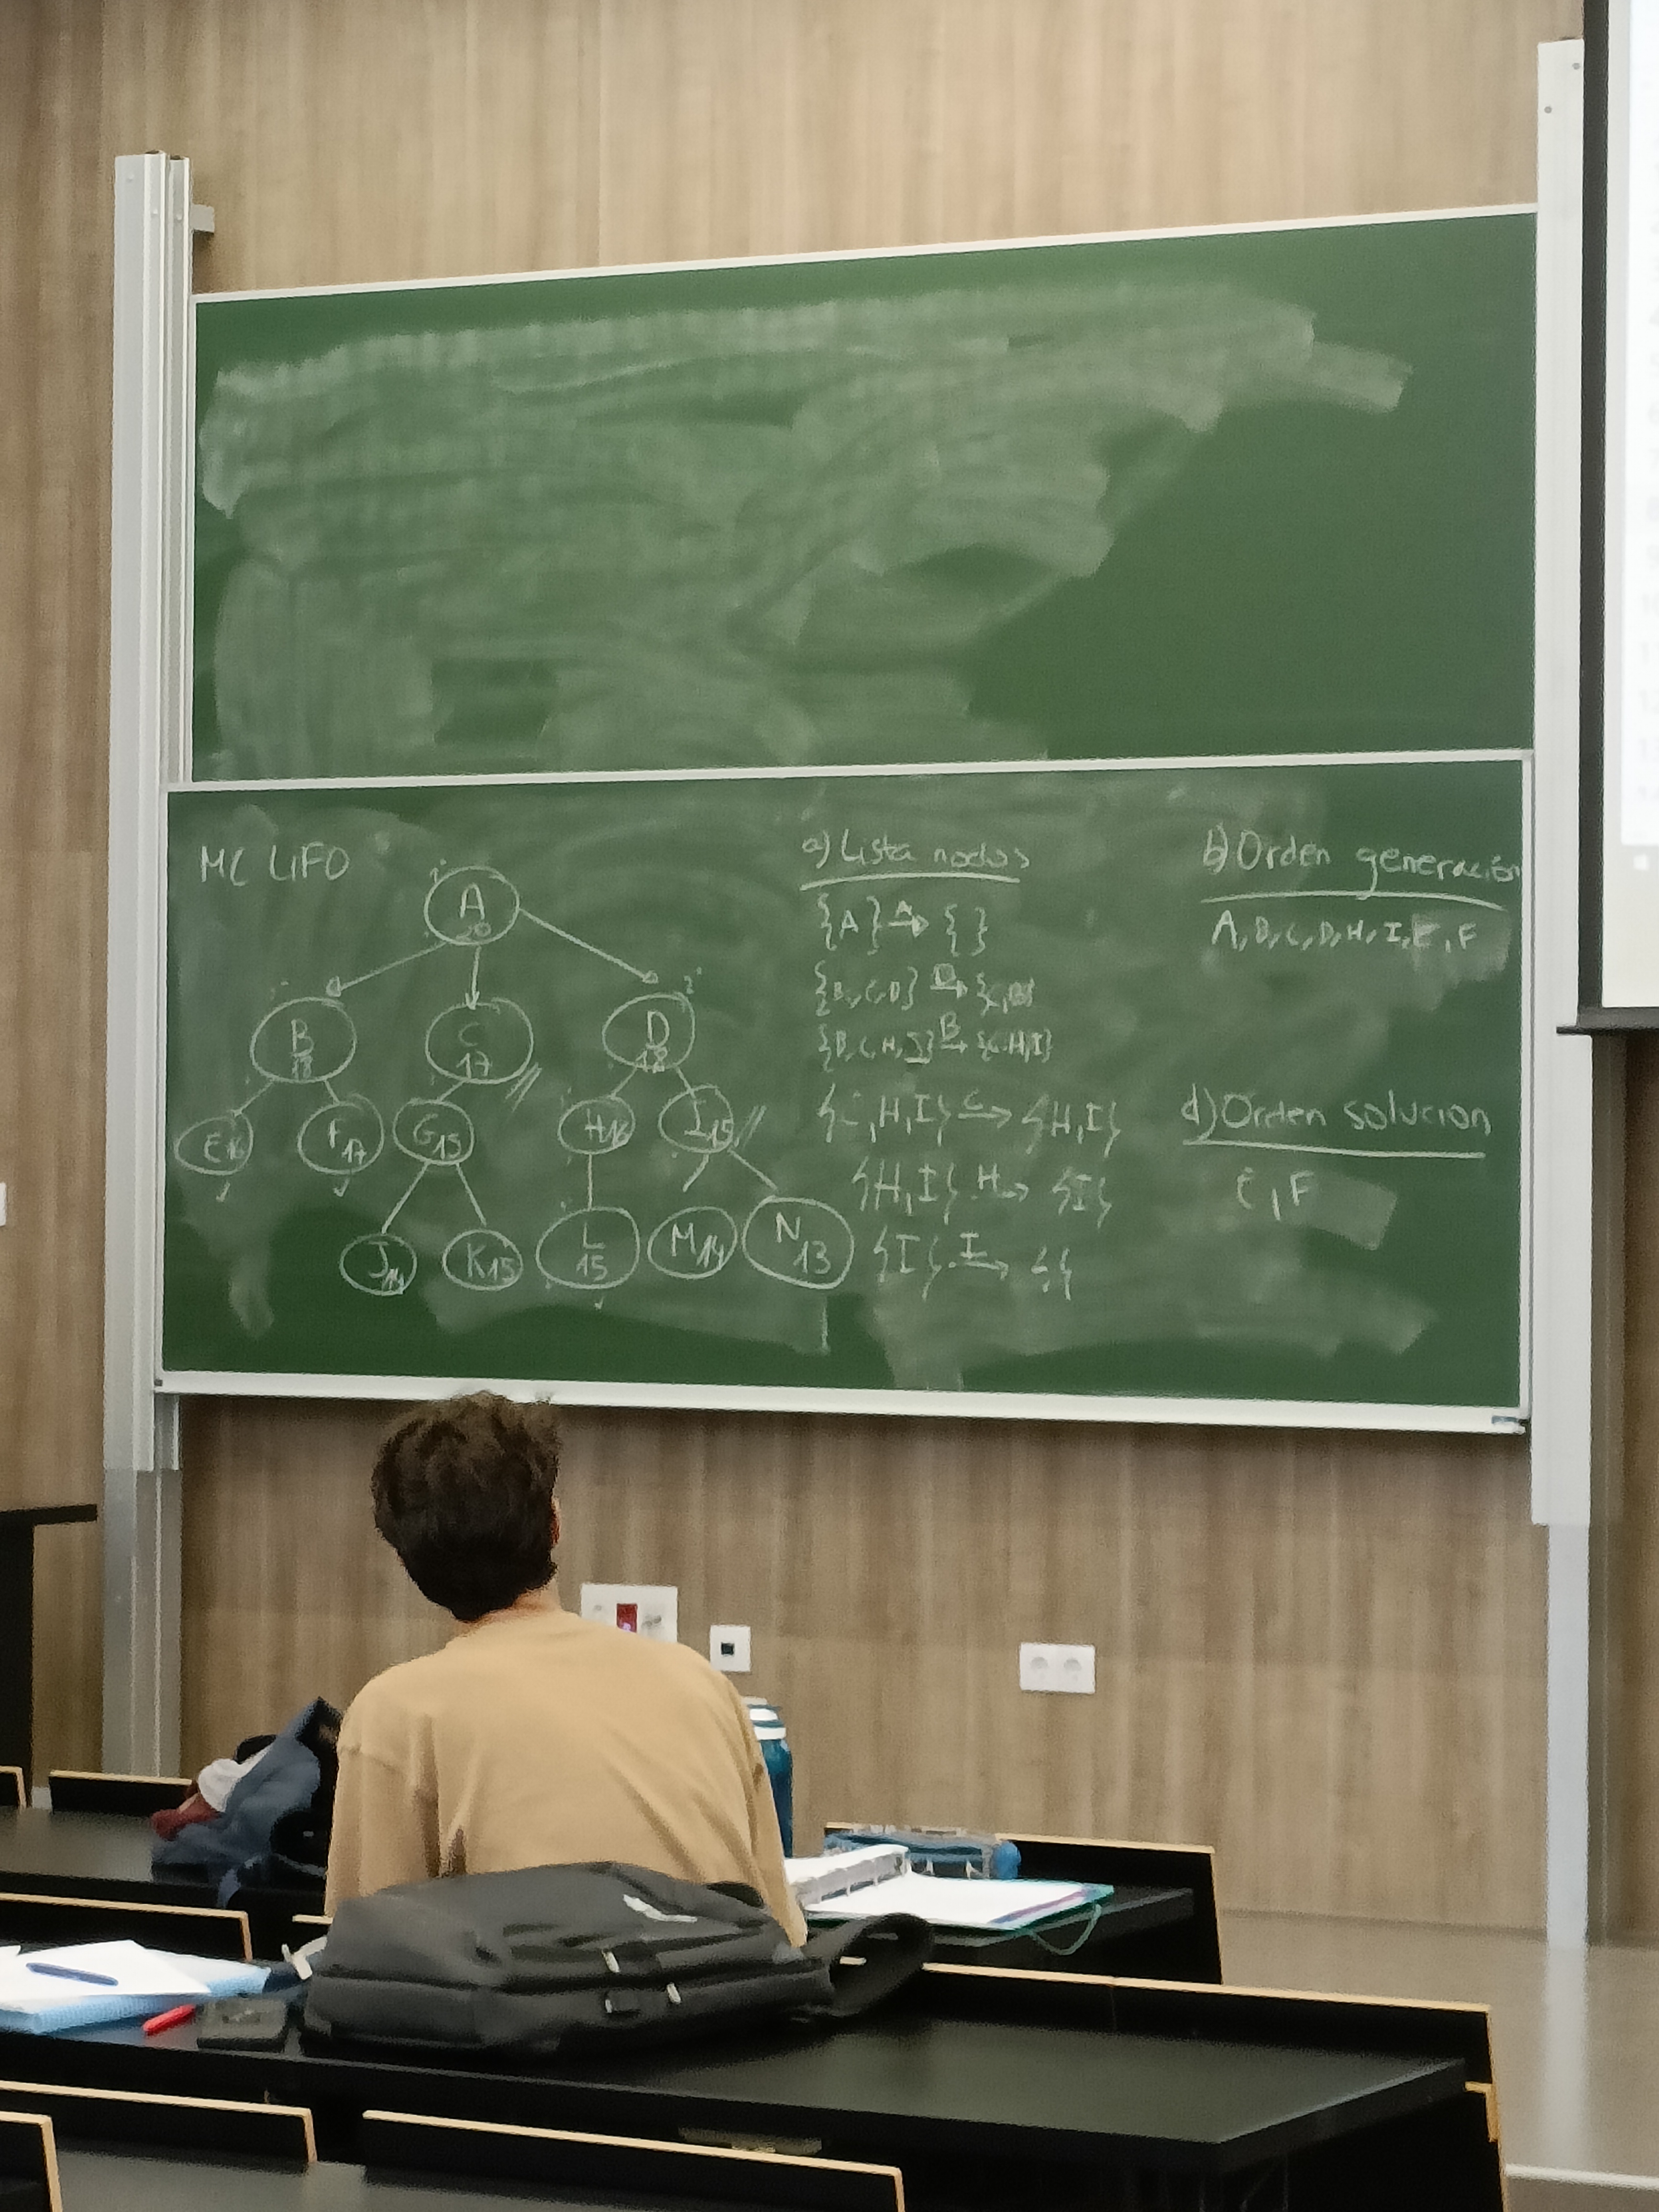 MC LIFO
A
20
B
18
C
17
D
18
E16
F17
G15
H16
I15
J14
K15
L
15
M14
N
13
a) Lista nodos
{A} A→ { }
{B,C,D} D→ {C,B}
{B,C,H,I} B→ {C,H,I}
{C,H,I} C→ {H,I}
{H,I} H→ {I}
{I} I→ { }
b) Orden generación
A,B,C,D,H,I,E,F
d) Orden solucion
E,F